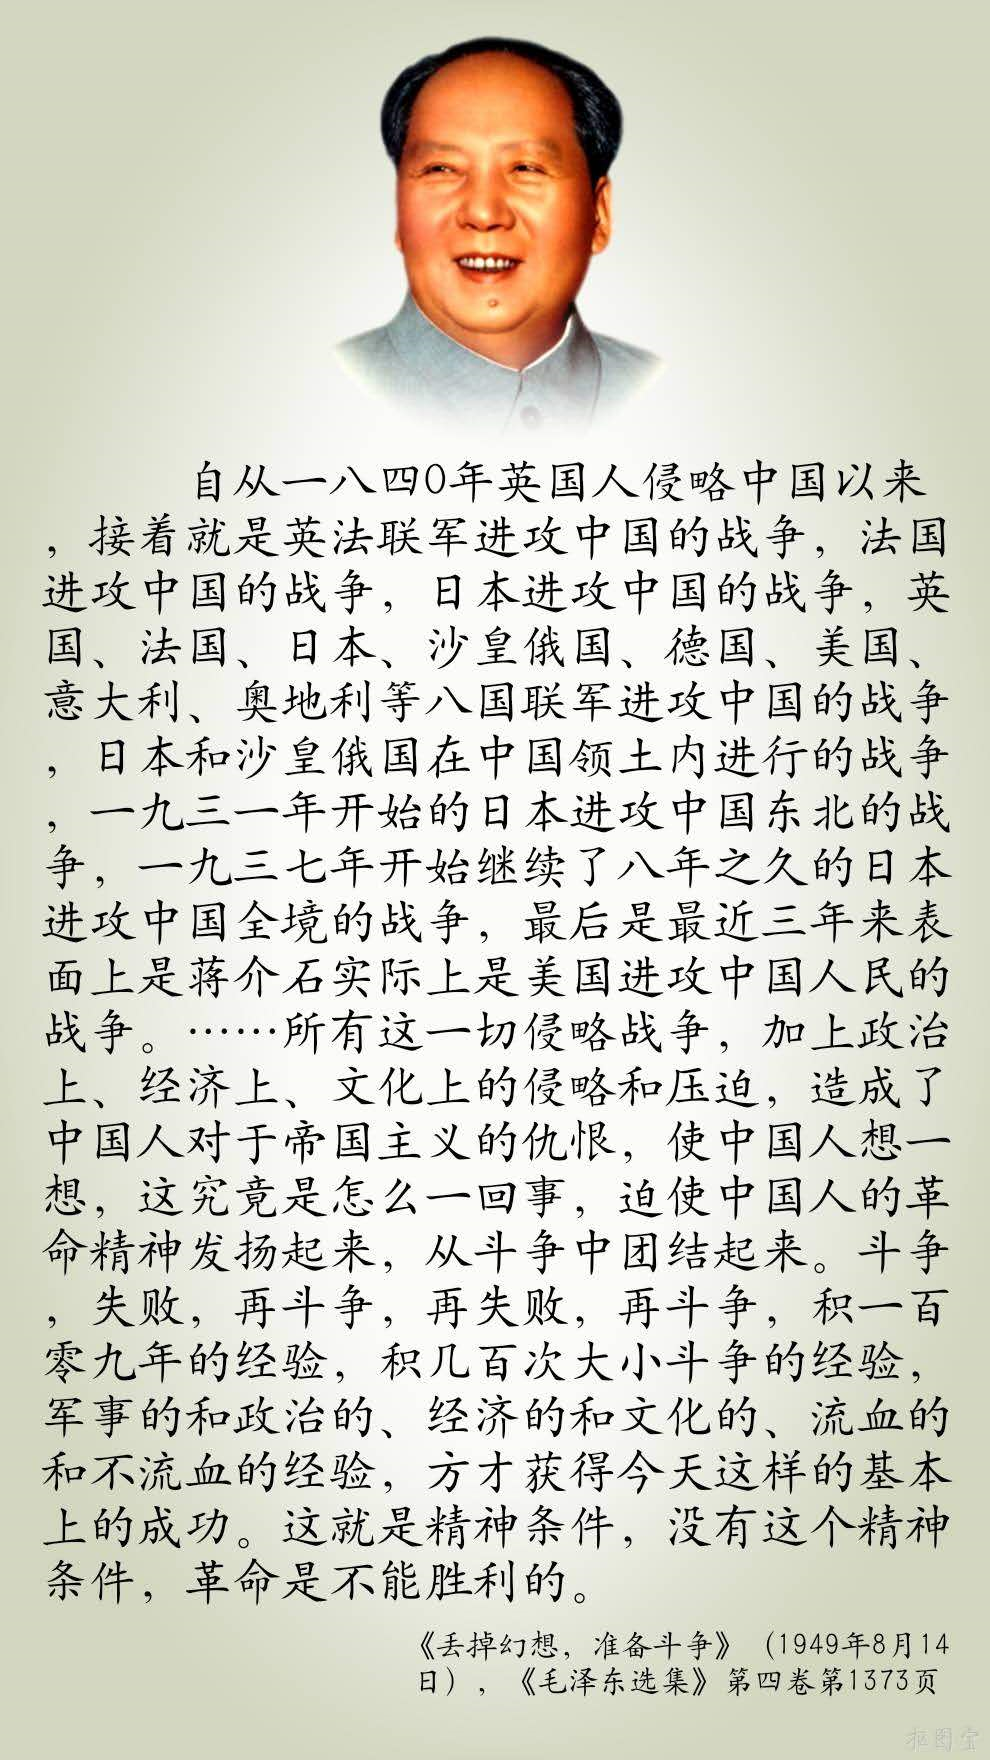 自从一八四0年英国人侵略中国以来
，接着就是英法联军进攻中国的战争，法国
进攻中国的战争，日本进攻中国的战争，英
国、法国、日本、沙皇俄国、德国、美国、
意大利、奥地利等八国联军进攻中国的战争
，日本和沙皇俄国在中国领土内进行的战争
，一九三一年开始的日本进攻中国东北的战
争，一九三七年开始继续了八年之久的日本
进攻中国全境的战争，最后是最近三年来表
面上是蒋介石实际上是美国进攻中国人民的
战争。……所有这一切侵略战争，加上政治
上、经济上、文化上的侵略和压迫，造成了
中国人对于帝国主义的仇恨，使中国人想一
想，这究竟是怎么一回事，迫使中国人的革
命精神发扬起来，从斗争中团结起来。斗争
，失败，再斗争，再失败，再斗争，积一百
零九年的经验，积几百次大小斗争的经验，
军事的和政治的、经济的和文化的、流血的
和不流血的经验，方才获得今天这样的基本
上的成功。这就是精神条件，没有这个精神
条件，革命是不能胜利的。
《丢掉幻想，准备斗争》（1949年8月14
日），《毛泽东选集》第四卷第1373页
抠图宝